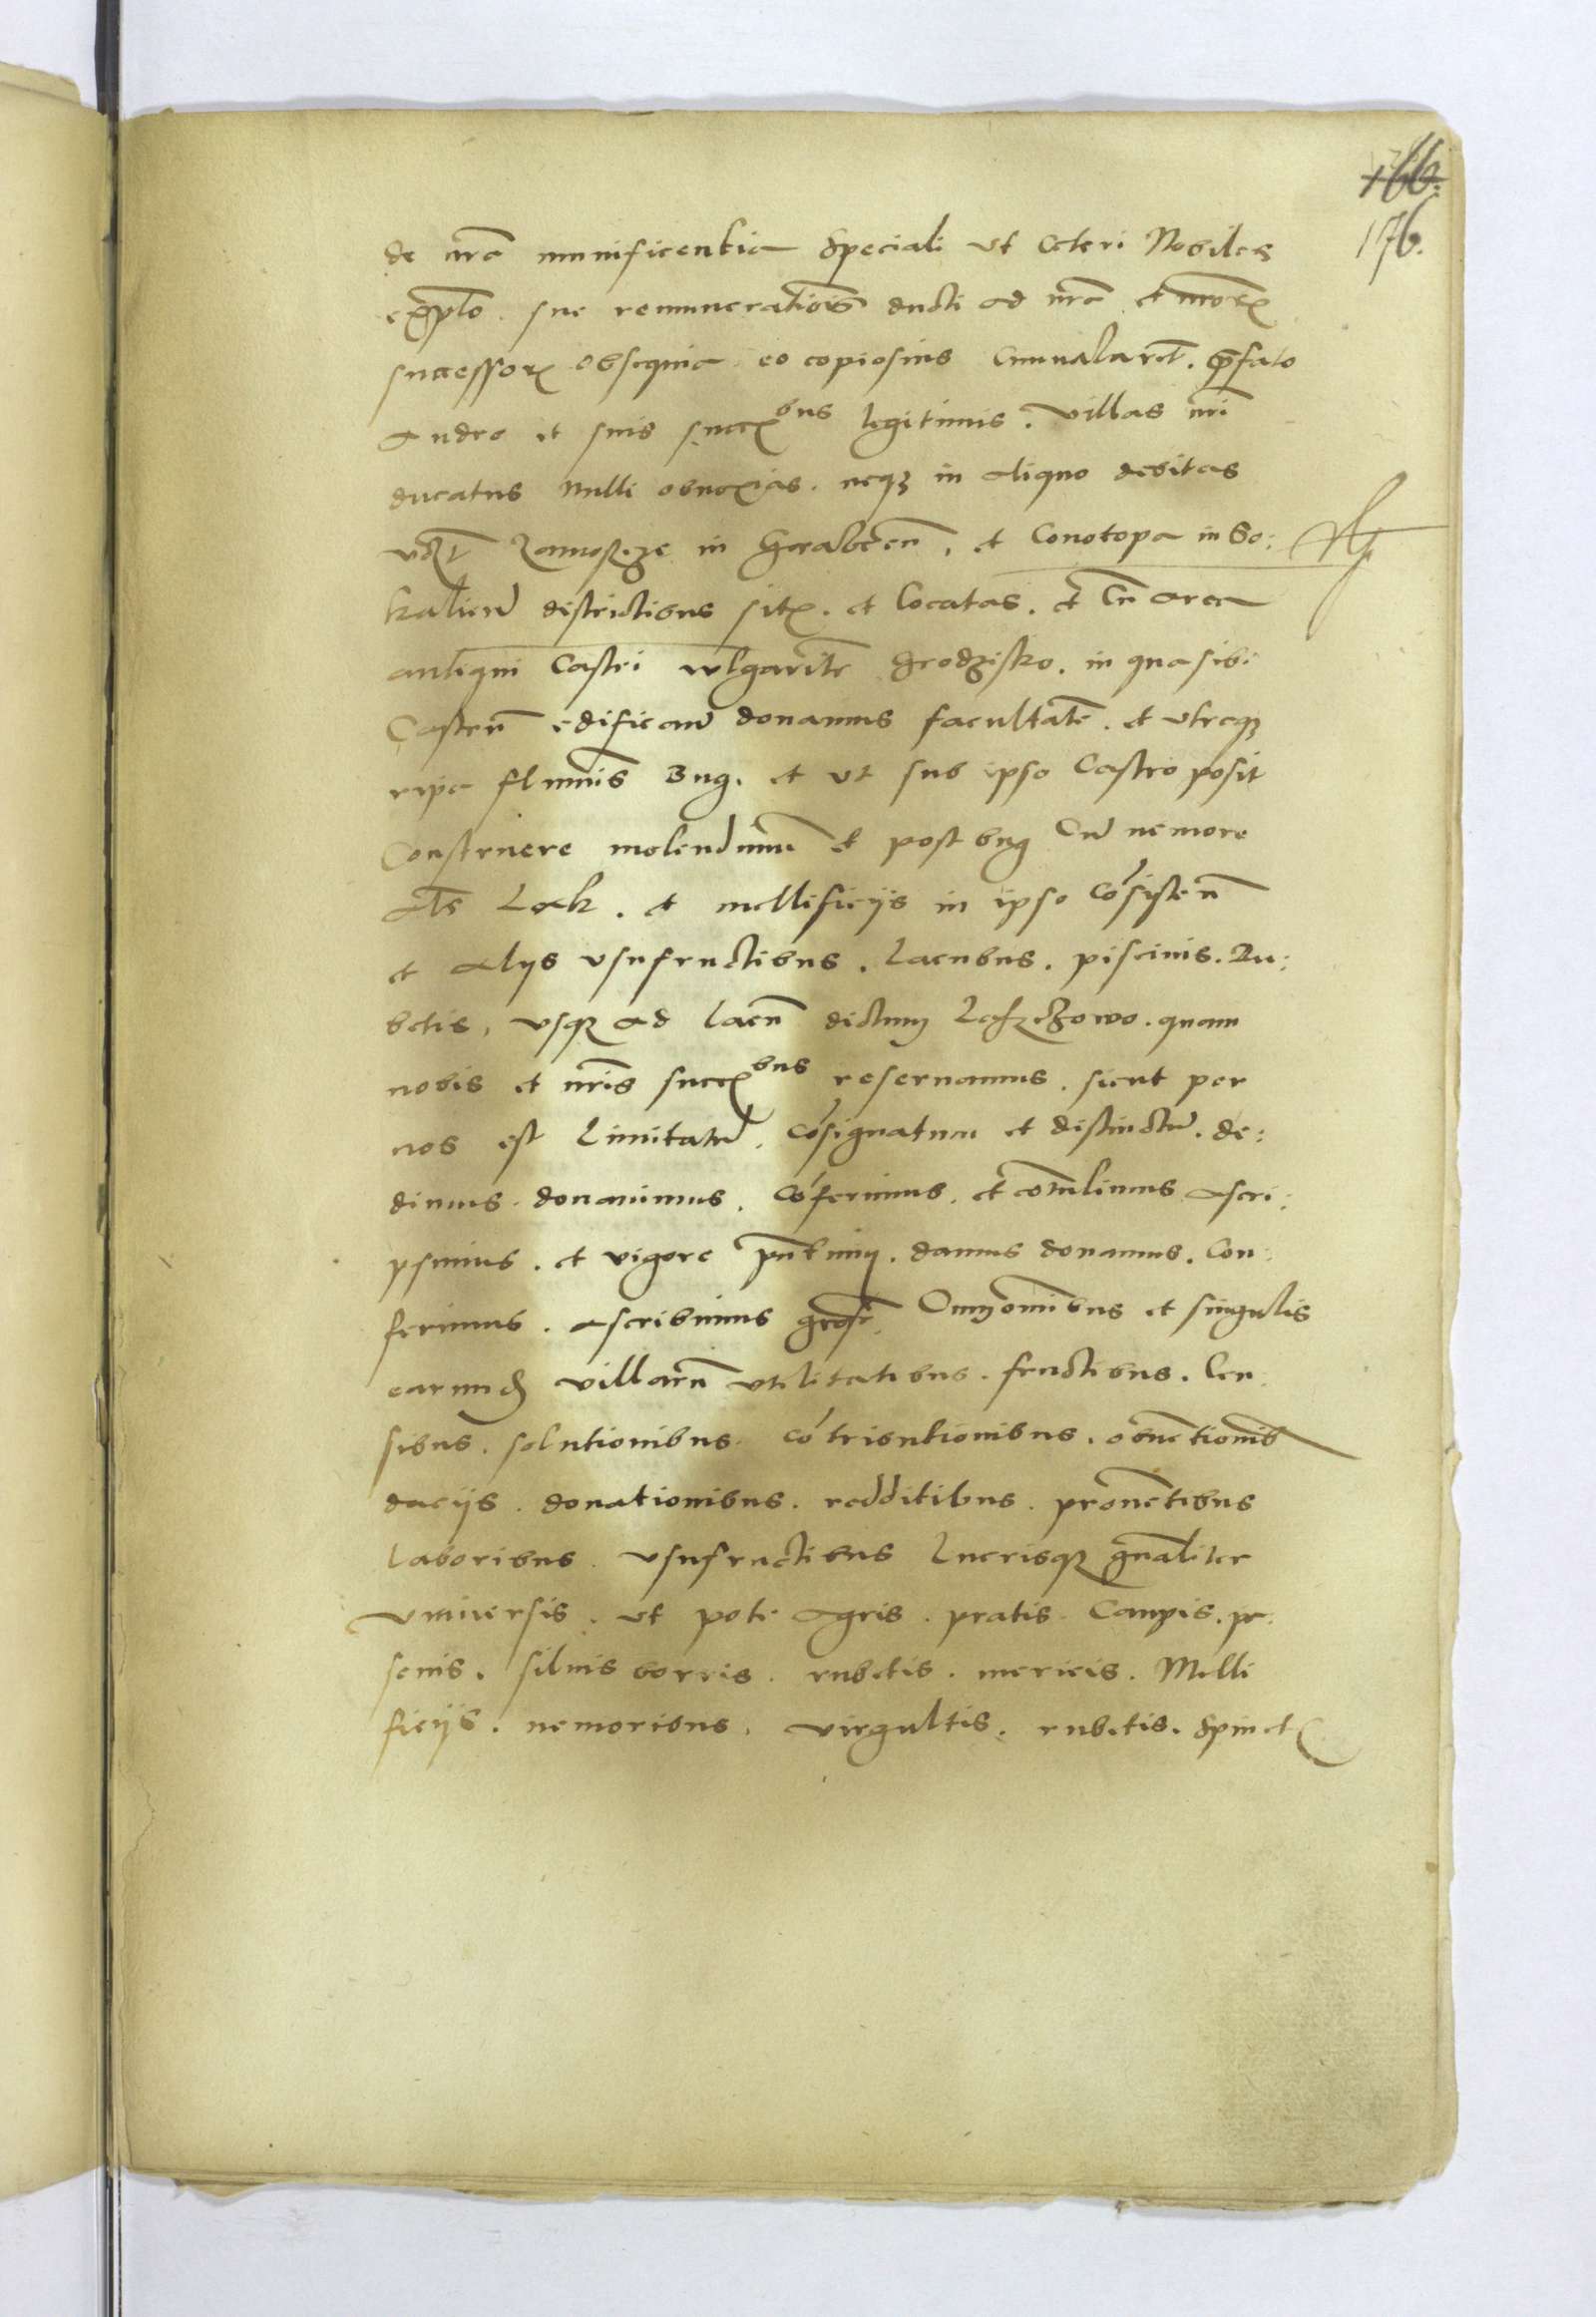 166.
176.
de nra munificentia Speciali ut Ceteri Nobiles
exp̄lo. sue remuneratiōis ducti ad nra et nror̄
successor̄ obsequia eo copiosius Cumularēt. p̄fato
Andree et suis succ̄bus legitimis. Villas nr̄i
ducatus nulli obnoxias. neqȝ in aliquo debitas
vdzt Zamoscze in Grabecen̄. et Conotopa in So:
kalien̄ districtibus sit̄. et Locatas. et Cū area
antiqui Castri vulgarit̄e Grodzisko. in qua sibi
Castrū edificand̄ donamus facultatē. et utraqȝ
ripa flūminis Bug. et ut sub ipso Castro posit
Construere molendinum et post bug Cū nemore
als Ląk. et mellificijs in ipso Cōsisten̄
et alijs usufructibus. Lacubus. piscinis. Ru:
betis, usqȝ ad lacū dictum quam
nobis et nr̄is succ̄bus reservamus. sicut per
nos est Limitatū. Cōsignatum et distinctū. de:
dimus. donavimus. Cōferimus. et cōtulimus ascri:
psimus. et vigore p̄ntium. damus donamus. Con:
ferimus. ascribimus Cum omībus et singulis
earund̄ villarū utilitatibus. fructibus. Cen:
sibus. solutionibus. cōtributionibus. obvētionib̄
dacijs. donationibus. redditibus. provētibus
laboribus. usufructibus Lucrisqȝ gn̄aliter
universis. ut pote agris. pratis. Campis. pa:
scuis. silvis borris. rubetis. mericis. Melli
ficijs. nemoribus. virgultis. rubetis. Spinet̄